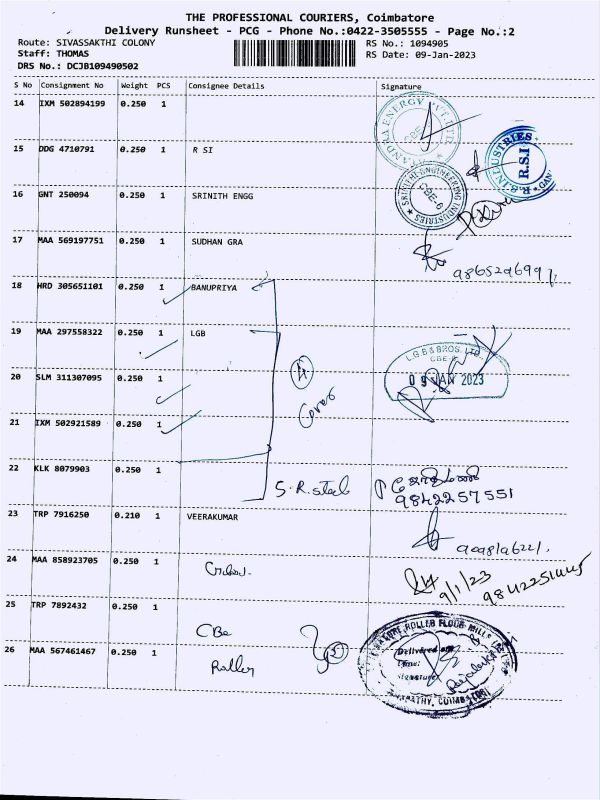 THE PROFESSIONAL COURIERS, Coimbatore
Delivery Runsheet - PCG - Phone No.:0422-3505555 - Page No.:2
Route: SIVASSAKTHI COLONY RS No.: 1094905
Staff: THOMAS RS Date: 09-Jan-2023
DRS No.: DCJB109490502
S No Consignment No Weight PCS Consignee Details Signature
14 IXM 502894199 0.250 1
15 DDG 4710791 0.250 1 R SI
R.S.INDUSTRIES
R.S.I
16 GNT 250094 0.250 1 SRINITH ENGG
SRINITHI ENGINEERING INDUSTRIES
CBE-6
17 MAA 569197751 0.250 1 SUDHAN GRA
18 HRD 305651101 0.250 1 BANUPRIYA
19 MAA 297558322 0.250 1 LGB
L.G.B & BROS. LTD.,
CBE-6
20 SLM 311307095 0.250 1
09 JAN 2023
Cover
21 IXM 502921589 0.250 1
22 KLK 8079903 0.250 1
S.R. steel
9842257551
23 TRP 7916250 0.210 1 VEERAKUMAR
24 MAA 858923705 0.250 1
9/1/23
25 TRP 7892432 0.250 1
CBe
26 MAA 567461467 0.250 1
Roller
ROLLER FLOUR MILLS
Delivered
Time:
Signature